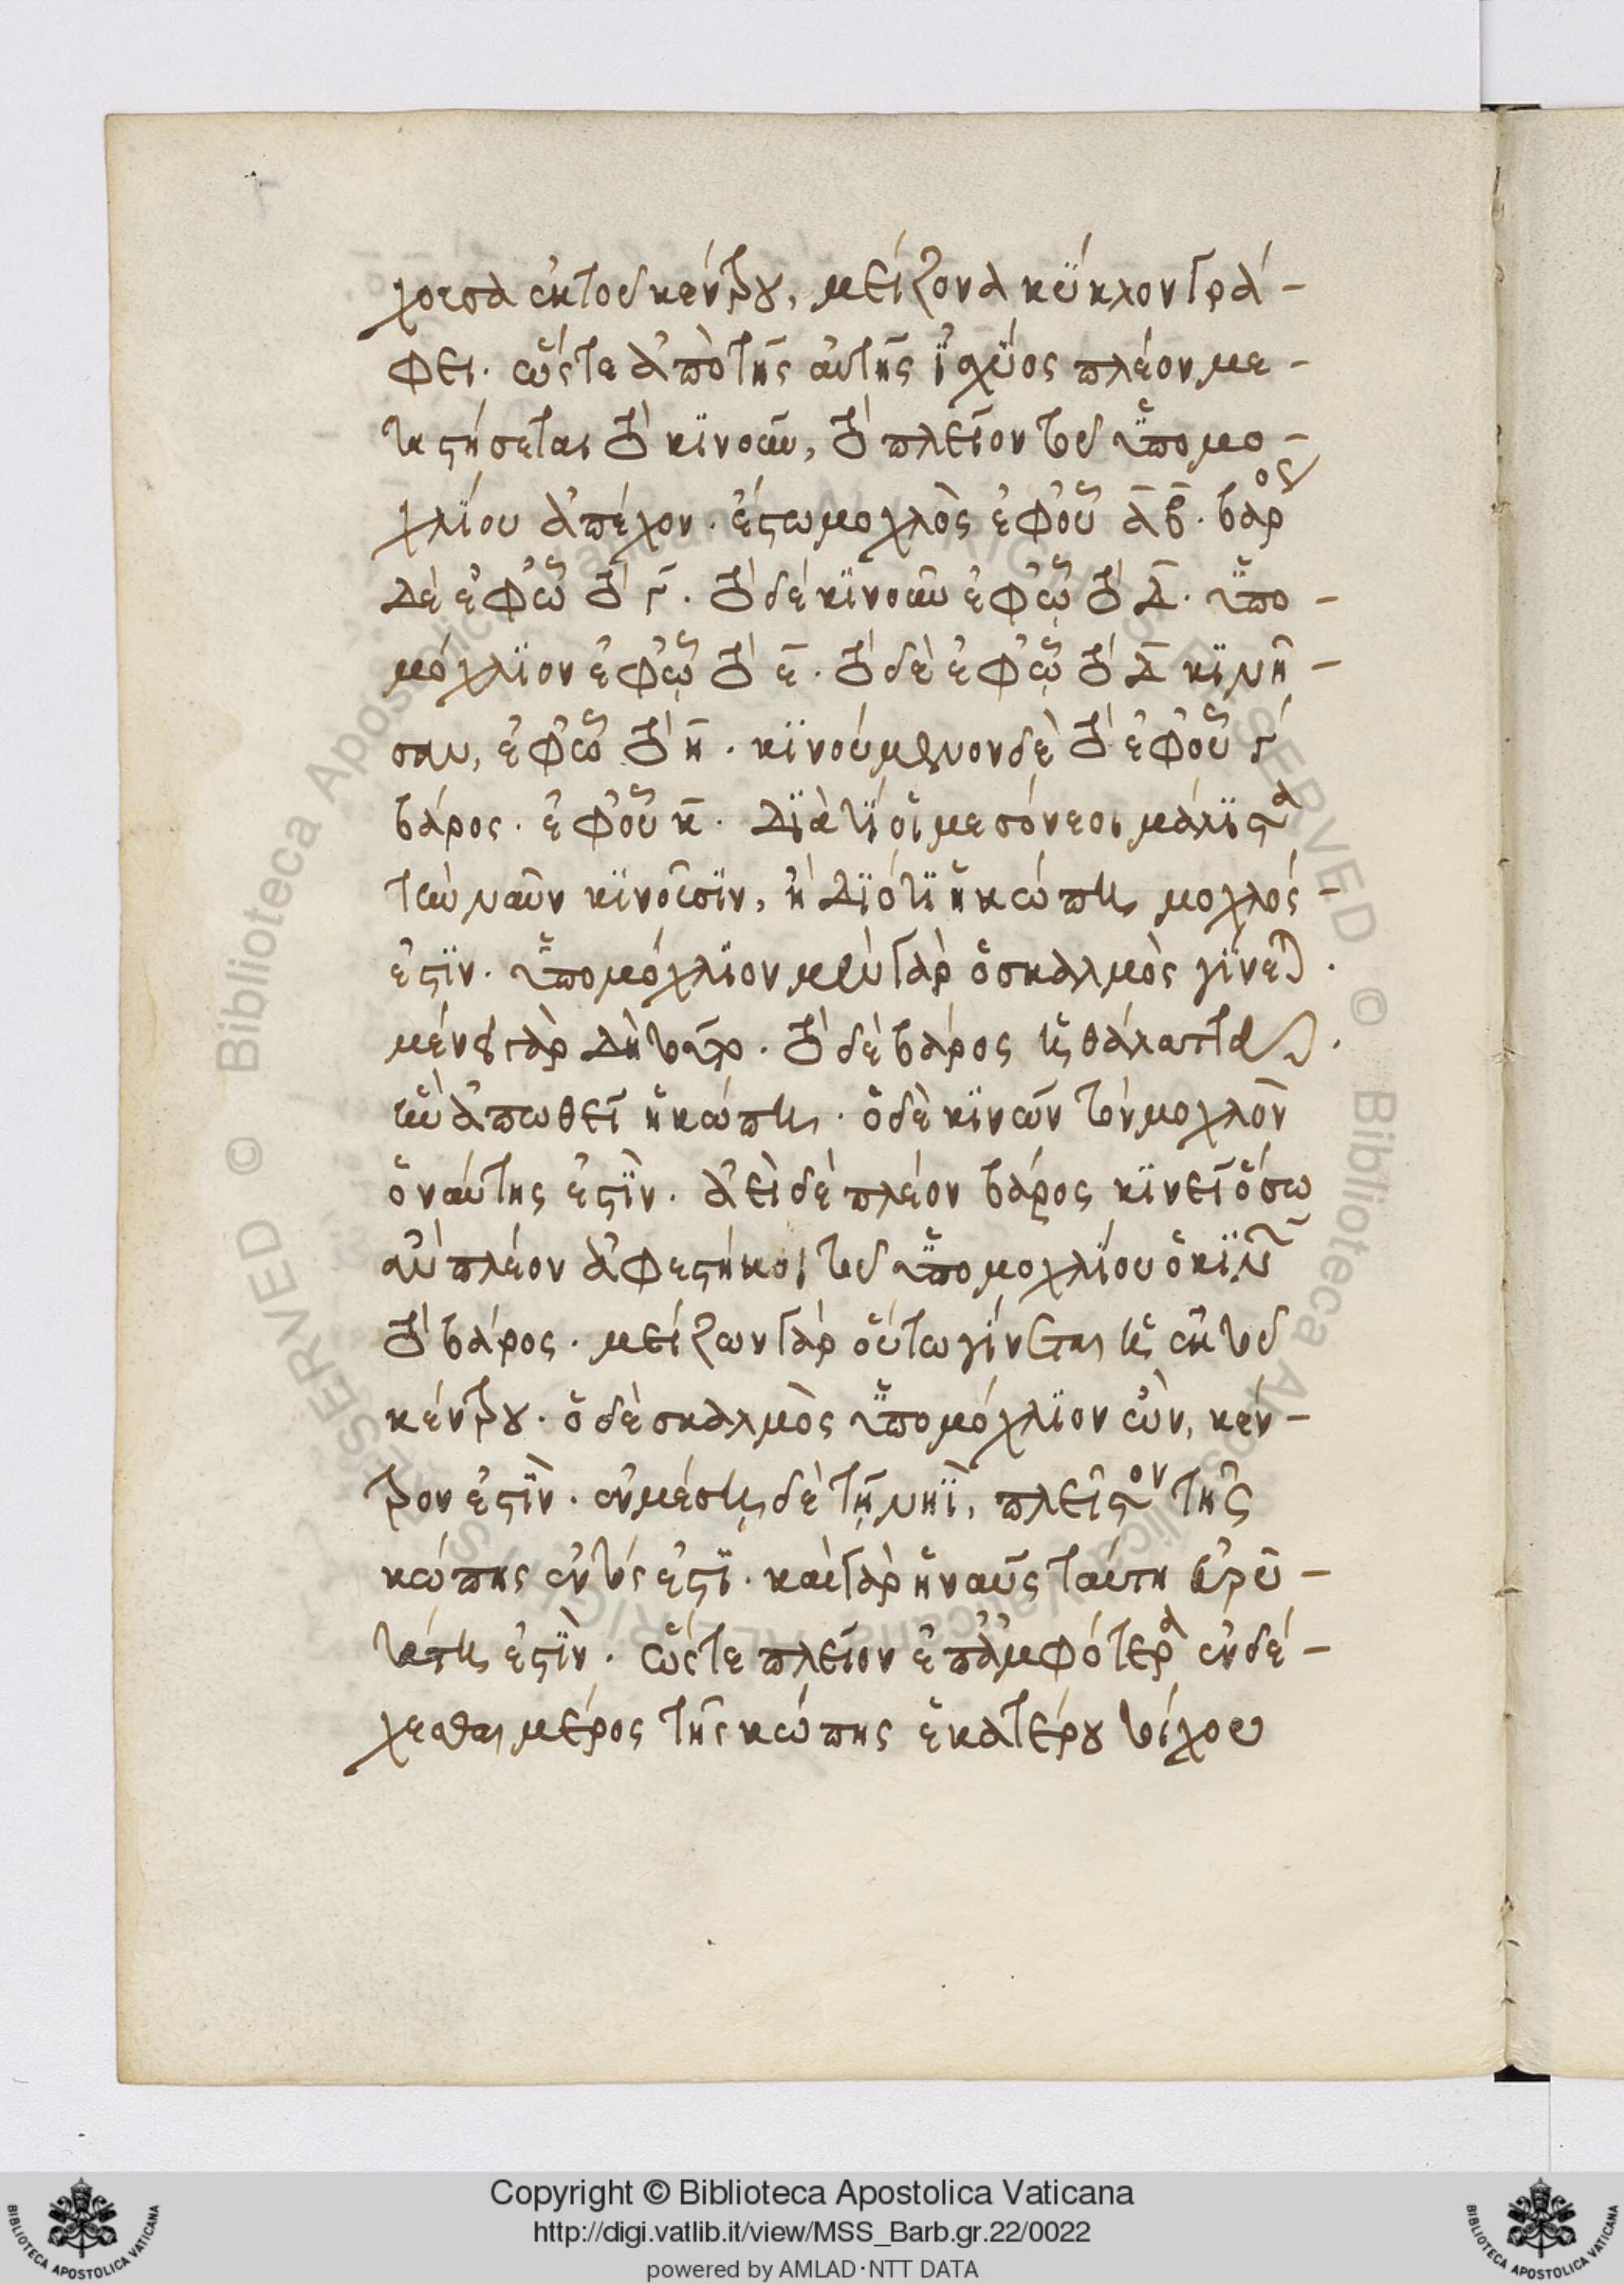 χουσα ἐκ τοῦ κέντρου, μείζονα κύκλον γρά-
φει. ὥστε ἀπὸ τῆς αὐτῆς ἰσχύος πλέον με-
ταστήσεται τὸ κινοῦν, τὸ πλεῖον τοῦ ὑπομο-
χλίου ἀπέχον. ἔστω μοχλὸς ἐφ' οὗ α̅β̅. βάρος
δὲ ἐφ' ᾧ τὸ γ̅. τὸ δὲ κινοῦν ἐφ' ᾧ τὸ δ̅. ὑπο-
μόχλιον ἐφ' ᾧ τὸ ε̅. τὸ δὲ ἐφ' ᾧ τὸ δ̅ κινῆ-
σαν, ἐφ' ᾧ τὸ η̅. κινούμενον δὲ τὸ ἐφ' οὗ γ̅
βάρος. ἐφ' οὗ κ̅. Διὰ τί οἱ μεσόνεοι μάλιστα
τὴν ναῦν κινοῦσιν, ἢ διότι ἡ κώπη μοχλός
ἐστιν. ὑπομόχλιον μὲν γὰρ ὁ σκαλμὸς γίνεται.
μένει γὰρ δὴ τοῦτο. τὸ δὲ βάρος ἡ θάλαττα.
ἣν ἀπωθεῖ ἡ κώπη. ὁ δὲ κινῶν τὸν μοχλὸν
ὁ ναύτης ἐστίν. ἀεὶ δὲ πλέον βάρος κινεῖ ὅσω
ἂν πλέον ἀφεστήκοι τοῦ ὑπομοχλίου ὁ κινῶν
τὸ βάρος. μείζων γὰρ οὕτω γίνεται ἡ ἐκ τοῦ
κέντρου. ὁ δὲ σκαλμὸς ὑπομόχλιον ὢν, κέν-
τρον ἐστίν. ἐν μέσῃ δὲ τῇ νηῒ, πλεῖστον τῆς
κώπης ἐντός ἐστι. καὶ γὰρ ἡ ναῦς ταύτῃ εὐρυ-
τάτη ἐστίν. ὥστε πλεῖον ἐπ' ἀμφότερα ἐνδέ-
χεσθαι μέρος τῆς κώπης ἑκατέρου τοίχου
Copyright © Biblioteca Apostolica Vaticana
http://digi.vatlib.it/view/MSS_Barb.gr.22/0022
powered by AMLAD·NTT DATA